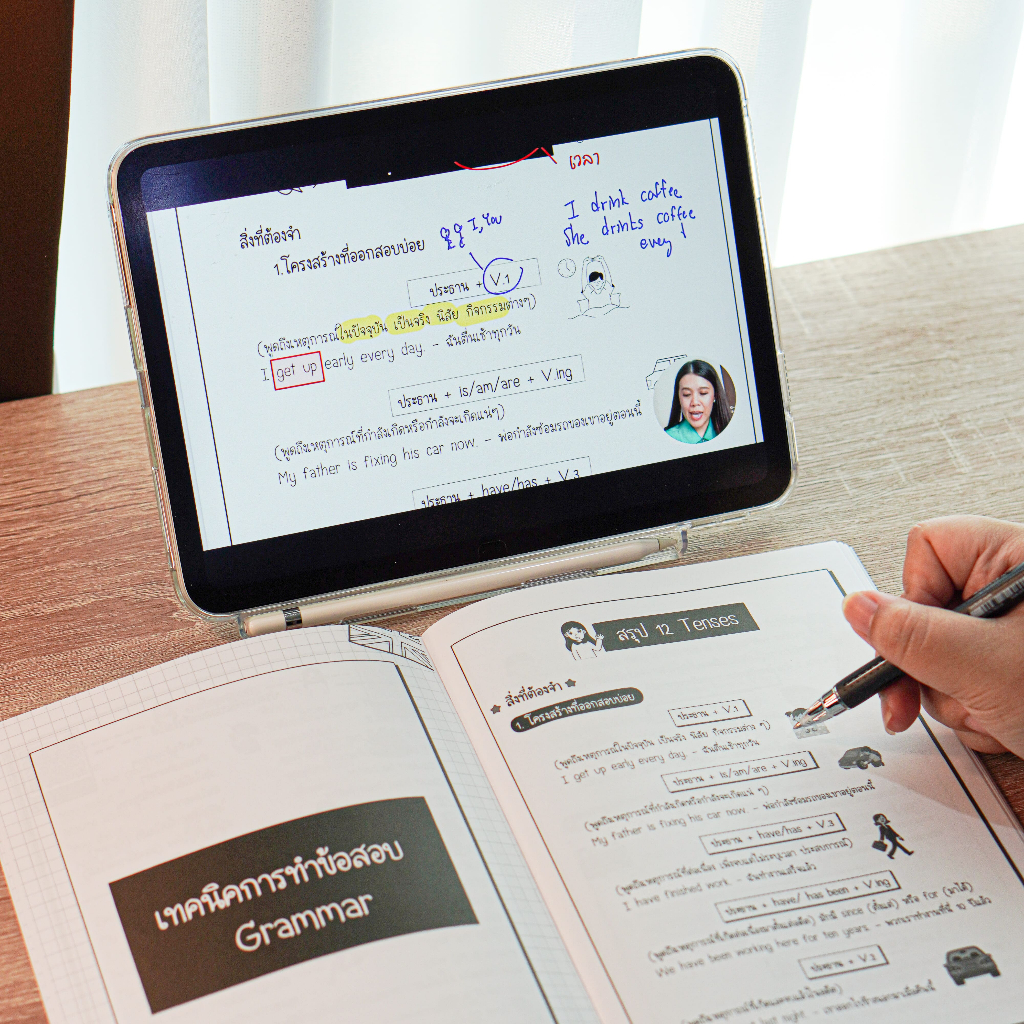 เวลา
สิ่งที่ต้องจำ
1.โครงสร้างที่ออกสอบบ่อย
I, You
I drink coffee
She drinks coffee
every
ประธาน + V.1
(พูดถึงเหตุการณ์ในปัจจุบัน เป็นจริง นิสัย กิจกรรมต่างๆ)
I get up early every day. - ฉันตื่นเช้าทุกวัน
ประธาน + is/am/are + V.ing
(พูดถึงเหตุการณ์ที่กำลังเกิดหรือกำลังจะเกิดแน่ๆ)
My father is fixing his car now. - พ่อกำลังซ่อมรถของเขาอยู่ตอนนี้
ประธาน + have/has + V.3
เทคนิคการทำข้อสอบ
Grammar
สรุป 12 Tenses
สิ่งที่ต้องจำ
1. โครงสร้างที่ออกสอบบ่อย
ประธาน + V.1
(พูดถึงเหตุการณ์ในปัจจุบัน เป็นจริง นิสัย กิจกรรมต่าง ๆ)
I get up early every day. - ฉันตื่นเช้าทุกวัน
ประธาน + is/am/are + V.ing
(พูดถึงเหตุการณ์ที่กำลังเกิดหรือกำลังจะเกิดแน่ ๆ)
My father is fixing his car now. - พ่อกำลังซ่อมรถของเขาอยู่ตอนนี้
ประธาน + have/has + V.3
(พูดถึงเหตุการณ์ที่ต่อเนื่อง เพิ่งจบแต่ไม่ระบุเวลา ประสบการณ์)
I have finished work. - ฉันทำงานเสร็จแล้ว
ประธาน + have/ has been + V.ing
(พูดถึงเหตุการณ์ที่เกิดต่อเนื่องมาตั้งแต่อดีต) มักมี since (ตั้งแต่) หรือ for (มาได้)
We have been working here for ten years. - พวกเราทำงานที่นี่ 10 ปีแล้ว
ประธาน + V.2
(พูดถึงเหตุการณ์ที่เกิดจบแล้วในอดีต)
last night. -